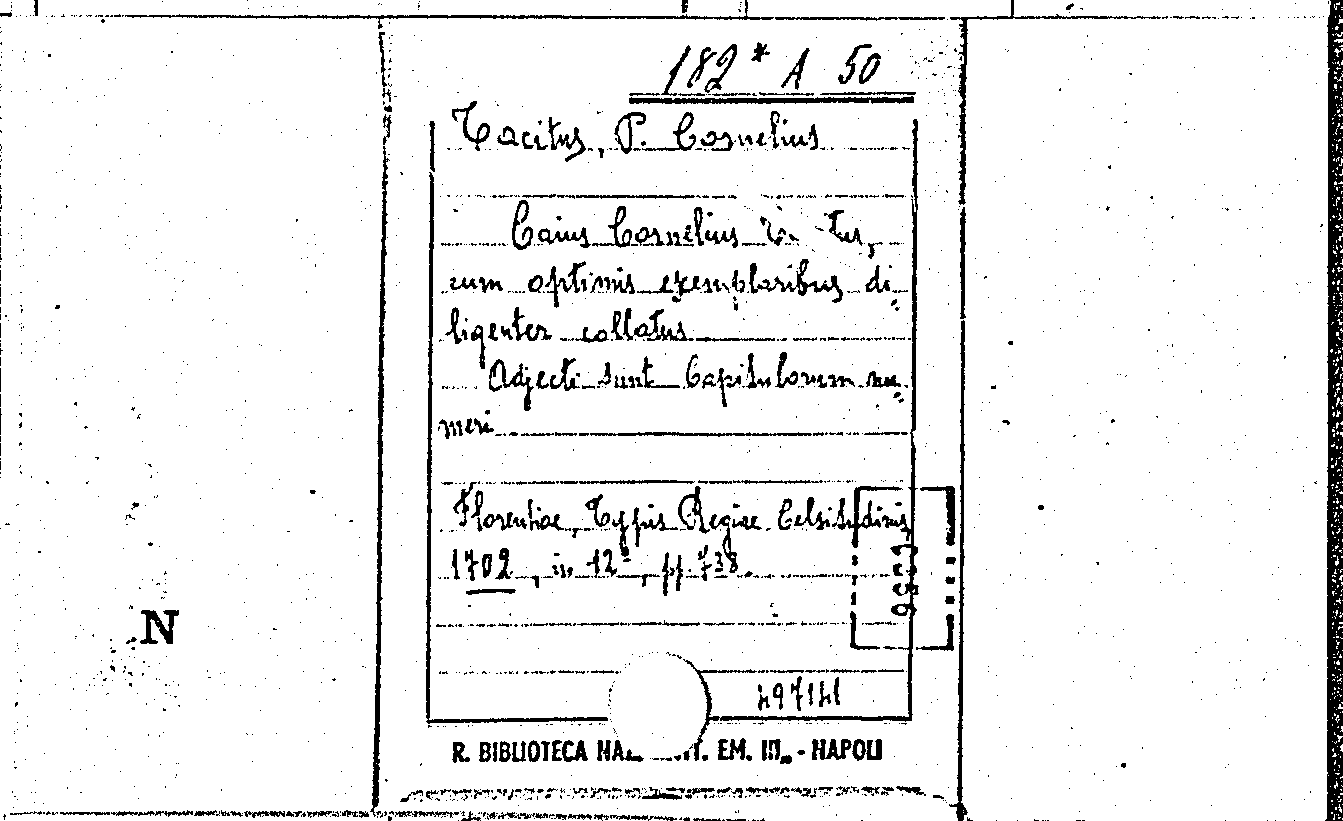 182* A 50
Tacitus, P. Cornelius
Caius Cornelius
cum optimis exemplaribus di-
ligenter collatus
Adjecti sunt Capitulorum nu-
meri
Florentiae, Typis Regiae Celsitudinis
1702, in 12°, pp. 738.
N
497141
R. BIBLIOTECA EM. III. - NAPOLI